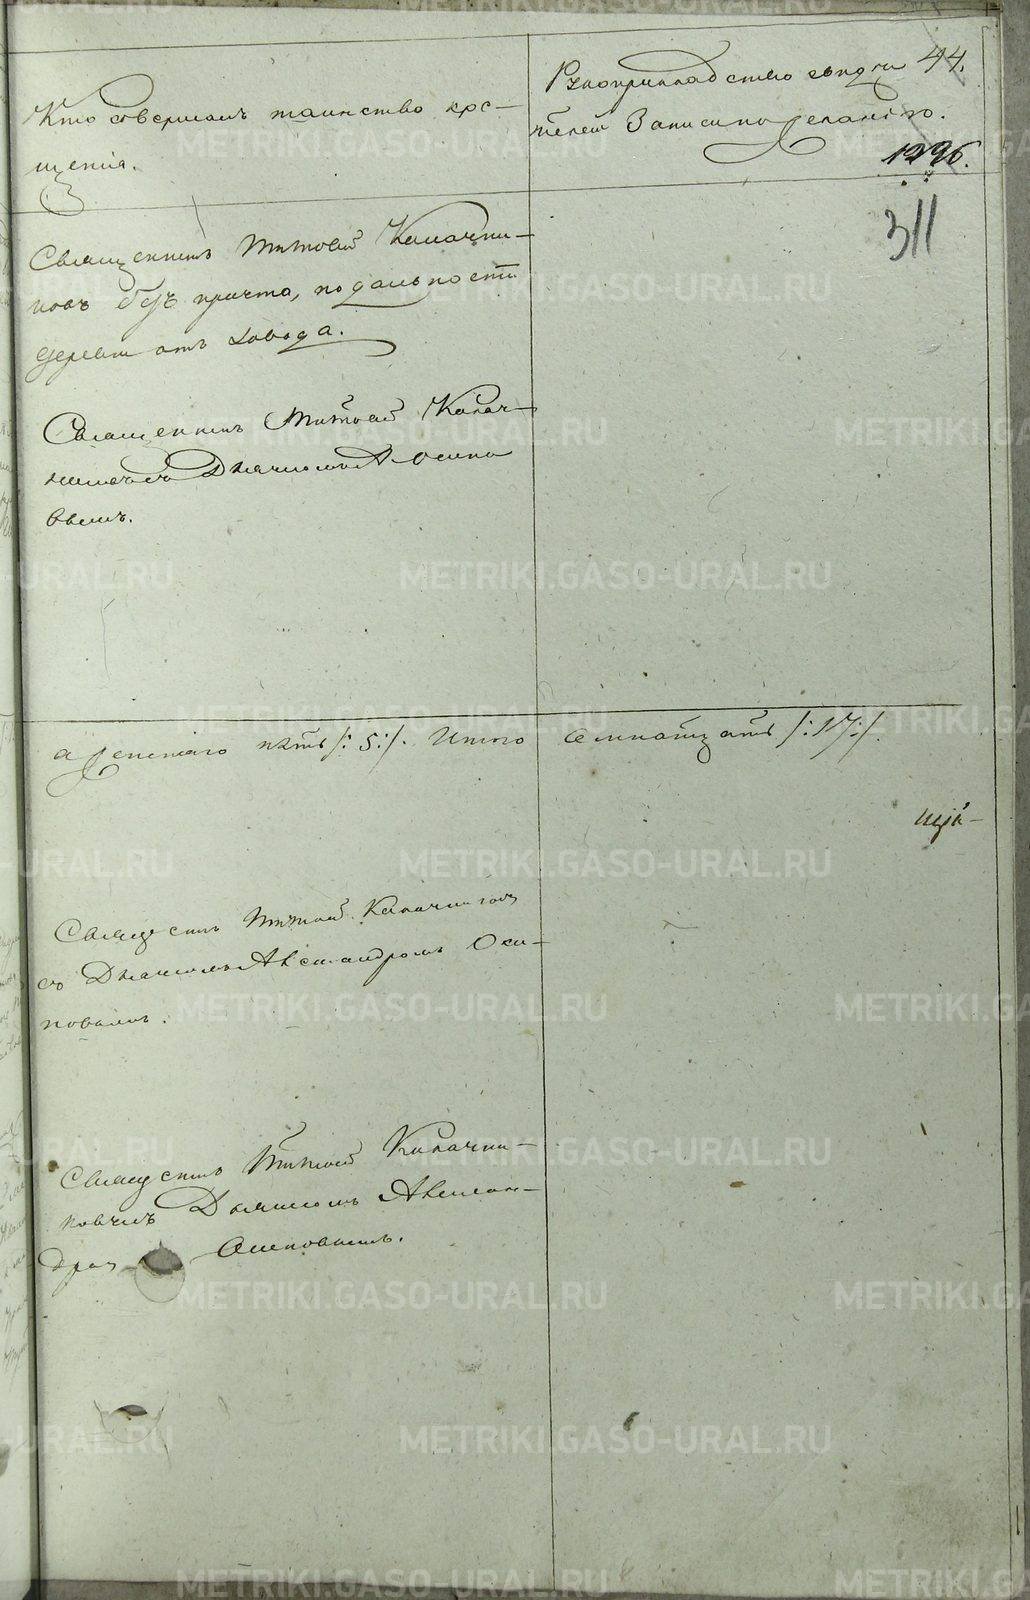 Кто совершалъ таинство кре-
щенія.
Рукоприкладство свидѣ 44.
телей Записи по желанію.
1296.
311
Священникъ Титовъ Калачни-
ковъ безъ причта, по дальности
деревни отъ завода.
Священникъ Калач-
Дьячкомъ А. Осипо
вымъ.
а женскаго пять /: 5 :/. Итого Семнатцать /: 17 :/.
Священ Калачниковъ
съ Дьячкомъ Александромъ Оси-
повымъ.
Священ Калачни-
ковъ съ Дьячкомъ Алексан-
дромъ Осиповымъ.
METRIKI.GASO-URAL.RU